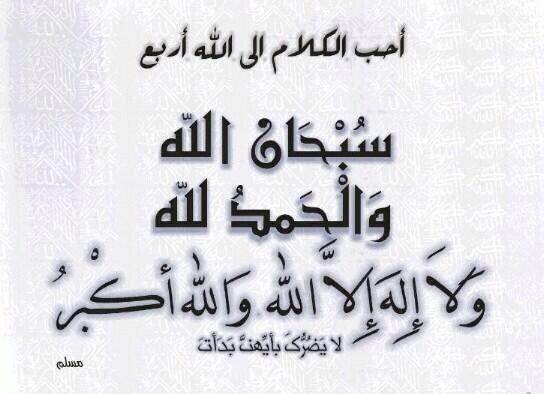 أحب الكلام الى الله أربع
سُبْحَان الله
وَالْحَمدُ لله
وَلَا إِلهَ إِلاَّ الله وَالله أكْبرُ
لا يَضرُّكَ بأيِّهنَّ بَدَأتَ
مسلم